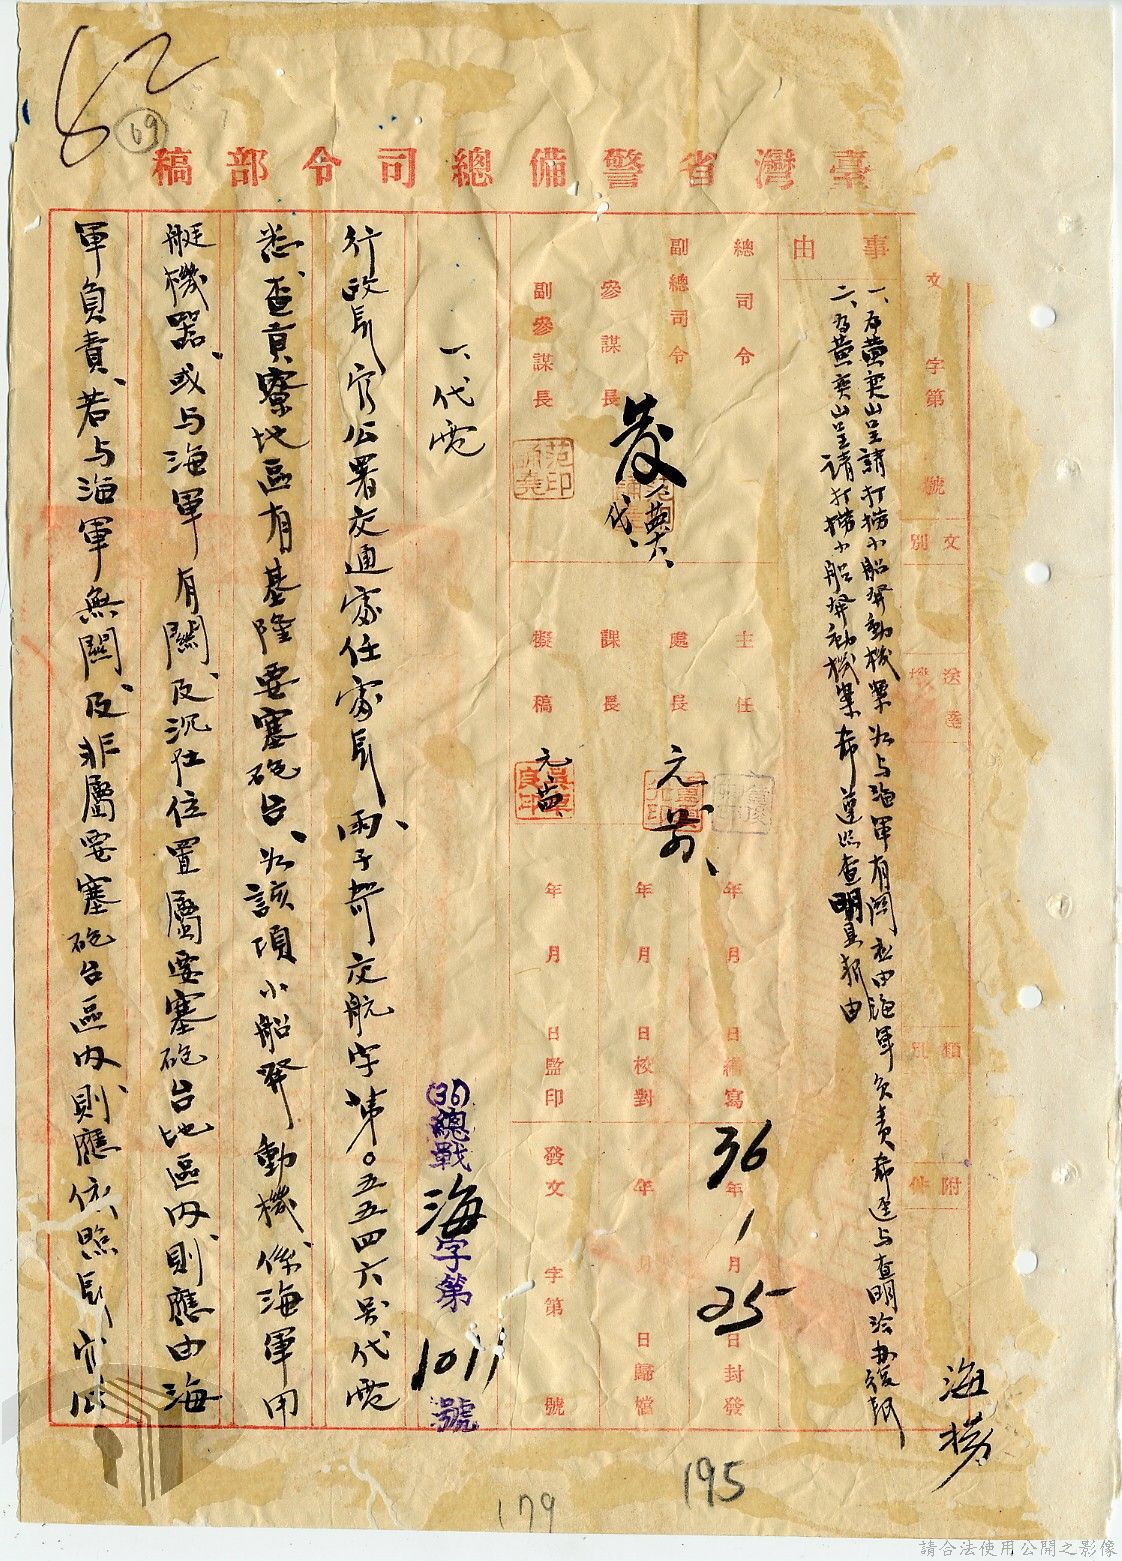 62
69
臺灣省警備總司令部稿
文 字第 號
文別
送達
類別
附件
事由
一、為黃奕山呈請打撈小船發動機案如与海軍有関應由海軍負責希逕与查明洽辦緩報
二、為黃奕山呈請打撈小船發動機案希遵照查明具報由
總司令
副總司令
參謀長
副參謀長
發
代
范印
主任
處長
課長
擬稿
元
元
年 月 日繕寫
年 月 日校對
年 月 日監印
36年1月25日封發
年 月 日歸檔
發文 字第 號
(36)總戰海字第1011號
一、代電
行政長官公署交通處任處長 兩、子 交航字第〇五五四六号代電
悉、查貢寮地區有基隆要塞砲台、如該項小船發動機係海軍用
艇機器、或与海軍有關、及沉在位置屬要塞砲台地區內、則應由海
軍負責、若与海軍無關、及非屬要塞砲台區內、則應依照長官公
海撈
195
179
請合法使用公開之影像